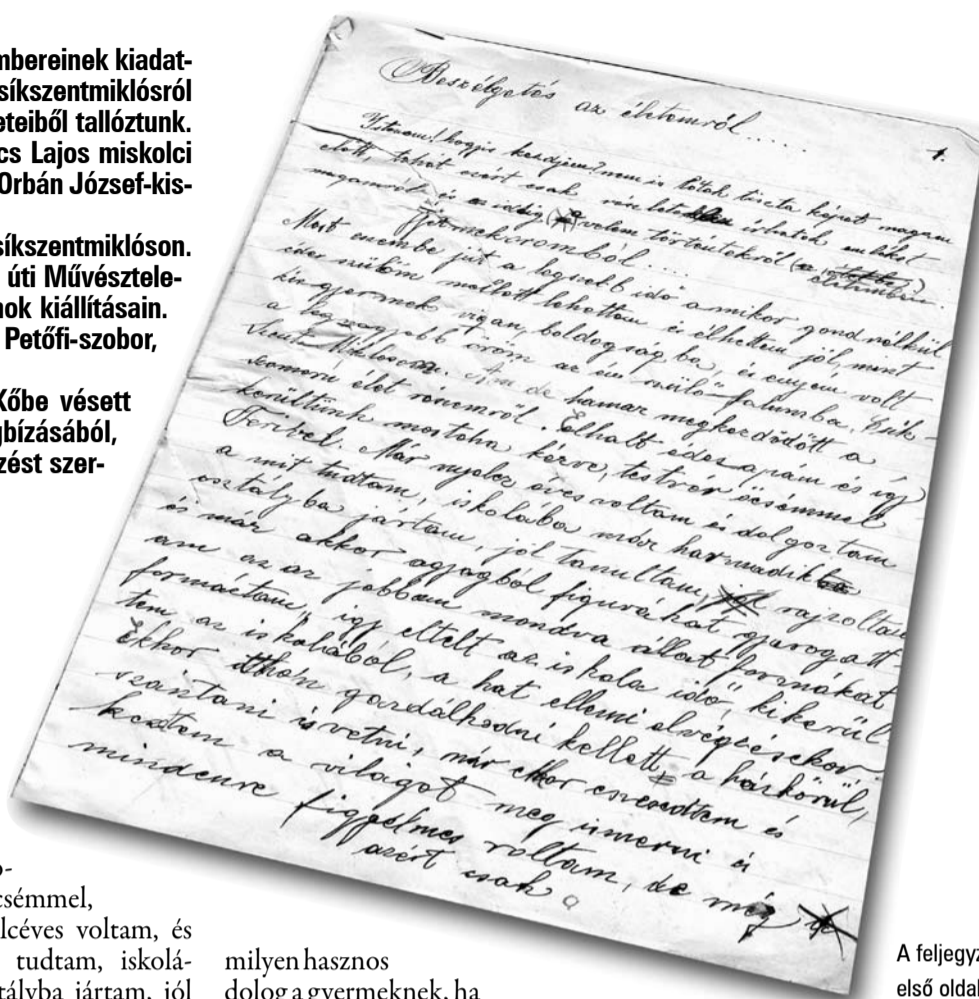 mbereinek kiadat-
síkszentmiklósról
eteiből tallóztunk.
cs Lajos miskolci
Orbán József-kis-
síkszentmiklóson.
úti Művésztele-
nok kiállításain.
Petőfi-szobor,
Kőbe vésett
gbízásából,
zést szer-
Beszélgetés az életemről.....
1.
Istenem! hogyis kezdjem? nem is látok tiszta képet magam
előtt, tehát ezért csak írhatok emlékeket
magamról és az eddig velem történtekről életemben.
Gyermekkoromból.....
Most eszembe jut a legszebb idő a mikor gond nélkül
édes szülőm mellett lehettem és élhettem jól, mint
kisgyermek vigan, boldogságba, és enyém volt
a legnagyobb öröm az én szülő falumba. Csík-
Szent Mikloson. Ám de hamar megkezdődött a
szomorú élet részemről. Elhalt édes apám és így
kerültünk mostoha kézre, testvér öcsémmel
Ferivel. Már nyolcz éves voltam és dolgoztam
a mit tudtam, iskolába már harmadik
osztályba jártam, jól tanultam, rajzoltam
és már akkor agyagból figurákat gyurogatt-
am az az jobban mondva állat formákat
formáztam, így eltelt az iskola idő, kikerül
tem az iskolából, a hat ellemi elvégzésekor.
Ekkor itthon gazdálkodni kellett, a házkörül,
szántani is vetni, már ekkor eszmedtem és
kezdtem a világot meg ismerni és
mindenre figyelmes voltam, de még
azért csak
csémmel,
lcéves voltam, és
tudtam, iskolá-
tályba jártam, jól
milyen hasznos
dolog a gyermeknek, ha
A feljegyz
első oldal